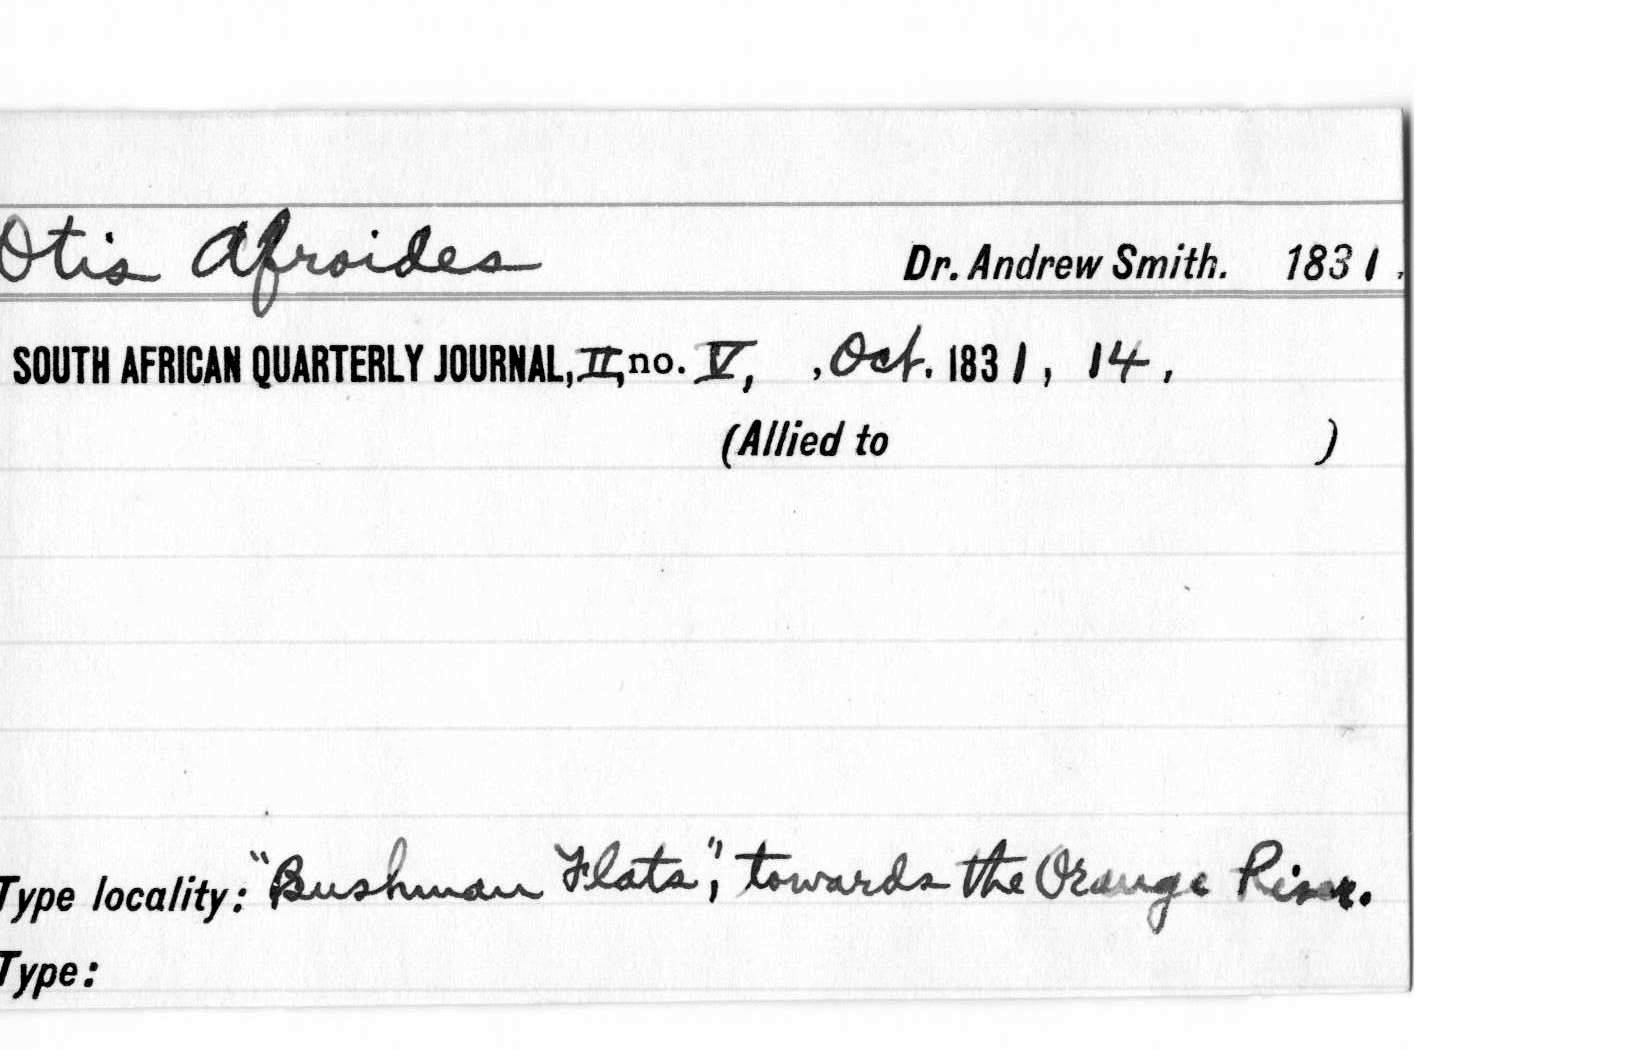 Otis Afroides Dr. Andrew Smith. 1831.
SOUTH AFRICAN QUARTERLY JOURNAL, II, no. V, , Oct. 1831, 14,
(Allied to )
Type locality: "Bushman Flats", towards the Orange River.
Type: